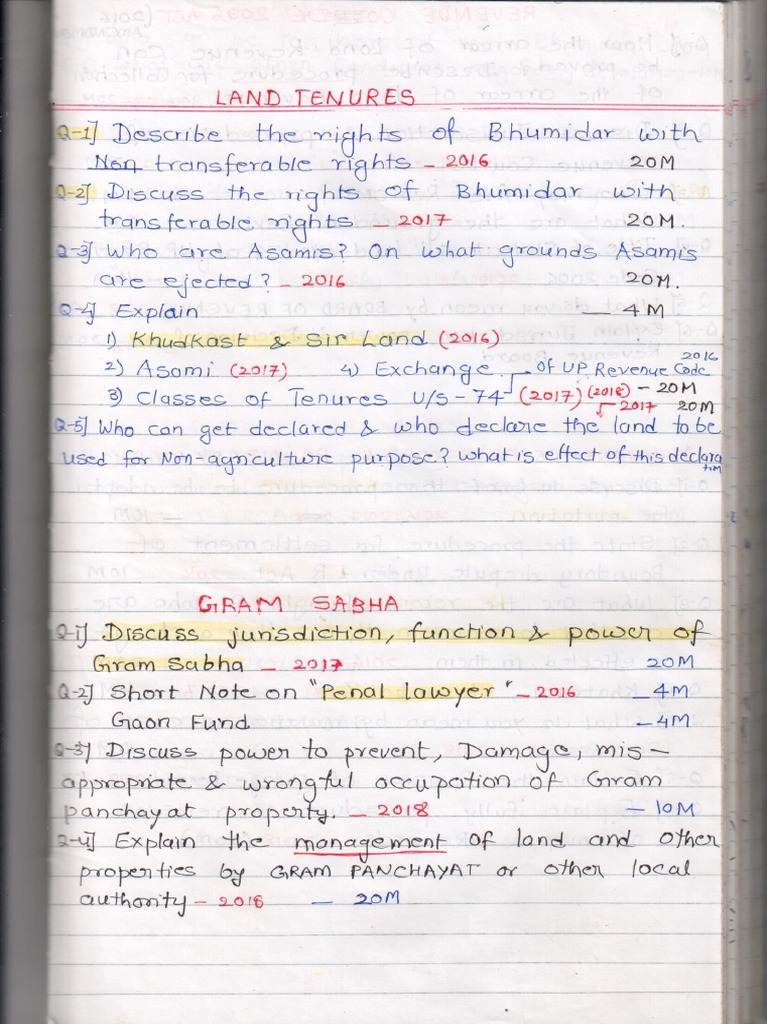 LAND TENURES
Q-1] Describe the rights of Bhumidar with
Non transferable rights - 2016 20M
Q-2] Discuss the rights of Bhumidar with
transferable rights - 2017 20M.
Q-3] Who are Asamis? On what grounds Asamis
are ejected? - 2016 20M.
Q-4] Explain - 4M
1) Khudkast & Sir Land (2016)
2) Asami (2017) 4) Exchange 2016
3) Classes of Tenures U/S-74 of UP. Revenue Code (2017) (2018) - 20M
2017 20M
Q-5] Who can get declared & who declare the land to be
used for Non-agriculture purpose? What is effect of this declaration
GRAM SABHA
Q-1] Discuss jurisdiction, function & power of
Gram Sabha - 2017 20M
Q-2] Short Note on "Penal lawyer" - 2016 - 4M
Gaon Fund - 4M
Q-3] Discuss power to prevent, Damage, mis-
appropriate & wrongful occupation of Gram
panchayat property. - 2018 - 10M
Q-4] Explain the management of land and other
properties by GRAM PANCHAYAT or other local
authority - 2018 - 20M